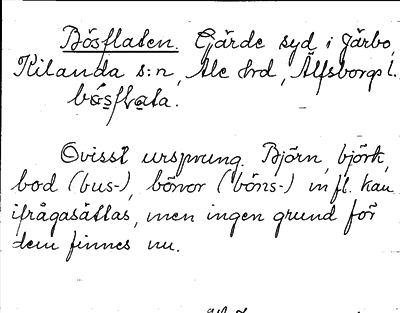 Bösflaten. Gärde syd i Järbo,
Kilanda s:n, Ale hrd, Älfsborgs l.
bo̊sflata.
Ovisst ursprung. Björn, björk,
bod (bus-), bönor (böns-) m fl. kan
ifrågasättas, men ingen grund för
dem finnes nu.